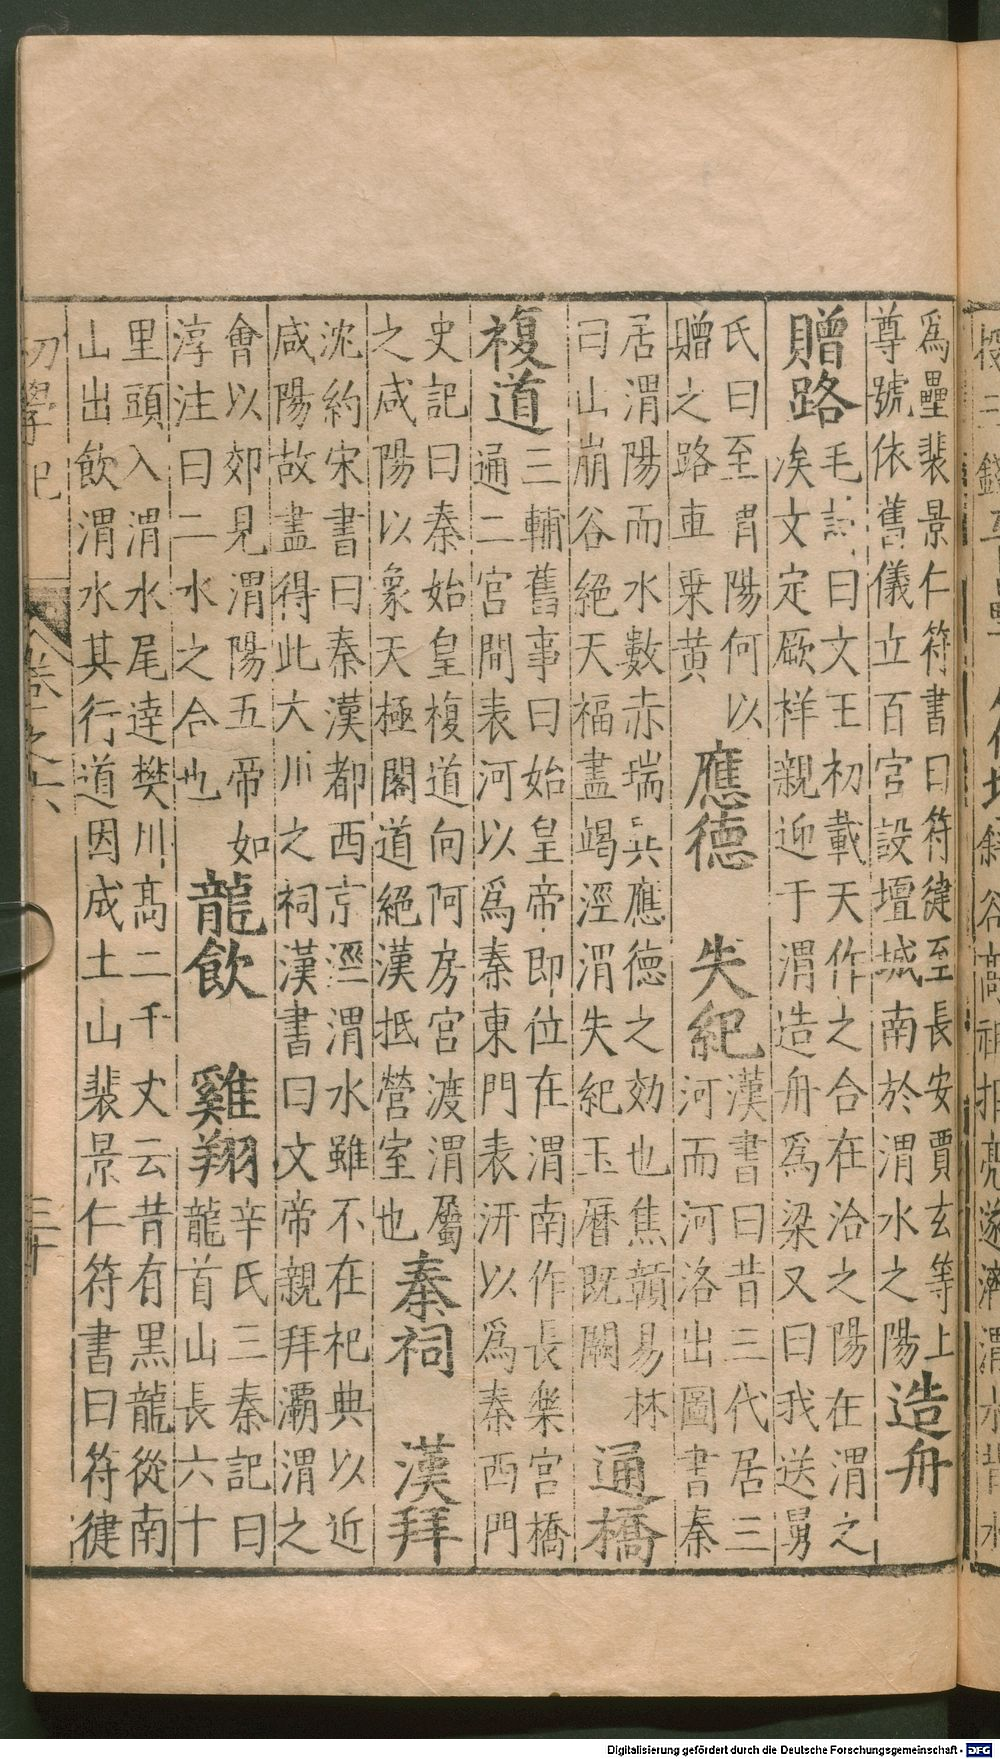 爲壘裴景仁符書曰符健至長安賈玄等上
尊號依舊儀立百官設壇城南於渭水之陽
造舟
毛詩曰文王初載天作之合在洽之陽在渭之
涘文定厥祥親迎于渭造舟爲梁又曰我送舅
贈路
氏曰至渭陽何以
贈之路車乗黄
應德
失紀
漢書曰昔三代居三
河而河洛出圖書秦
居渭陽而水數赤瑞兵應德之効也焦贛易林
曰山崩谷絕天福盡竭涇渭失紀玉曆既闕
通橋
複道
三輔舊事曰始皇帝即位在渭南作長樂宮橋
通二宮間表河以爲秦東門表汧以爲秦西門
史記曰秦始皇複道向阿房宮渡渭屬
之咸陽以象天極閣道絕漢抵營室也
秦祠
漢拜
沈約宋書曰秦漢都西京涇渭水雖不在祀典以近
咸陽故盡得此大川之祠漢書曰文帝親拜灞渭之
會以郊見渭陽五帝如
淳注曰二水之合也
龍飲
雞翔
辛氏三秦記曰
龍首山長六十
里頭入渭水尾達樊川高二千丈云昔有黑龍從南
山出飲渭水其行道因成土山裴景仁符書曰符健
初學記
卷之六
三十
Digitalisierung gefördert durch die Deutsche Forschungsgemeinschaft - DFG